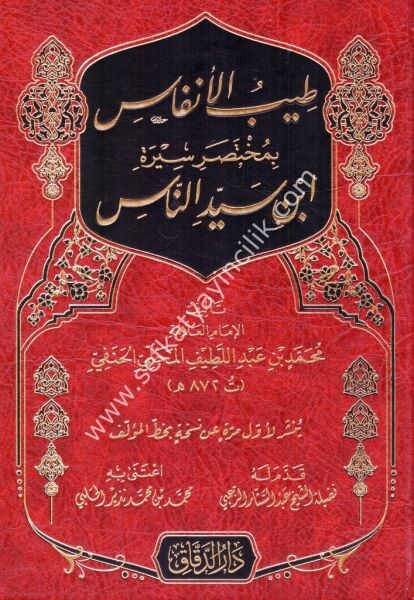 طِيبُ الأَنفَاسِ
بِمُخْتَصَرِ سِيْرَةِ
ابْنِ سَيِّدِ النَّاسِ
الإمَام
مُحَمَّد بْن عَبْد اللَّطِيْف الحَنَفِيّ
(ت ٨٧٢ هـ)
يُنْشَرُ لأَوَّل مَرَّة عَن نُسْخَةٍ بِخَطِّ المُؤلّف
قَدَّمَ لَهُ
فضيلة الشيخ عبد الستار الزعبي
اعْتَنَى بِهِ
محمد بن محمد نذير الحلبي
دَارُ الدَّقَّاقِ
www.serkatyayincilik.com